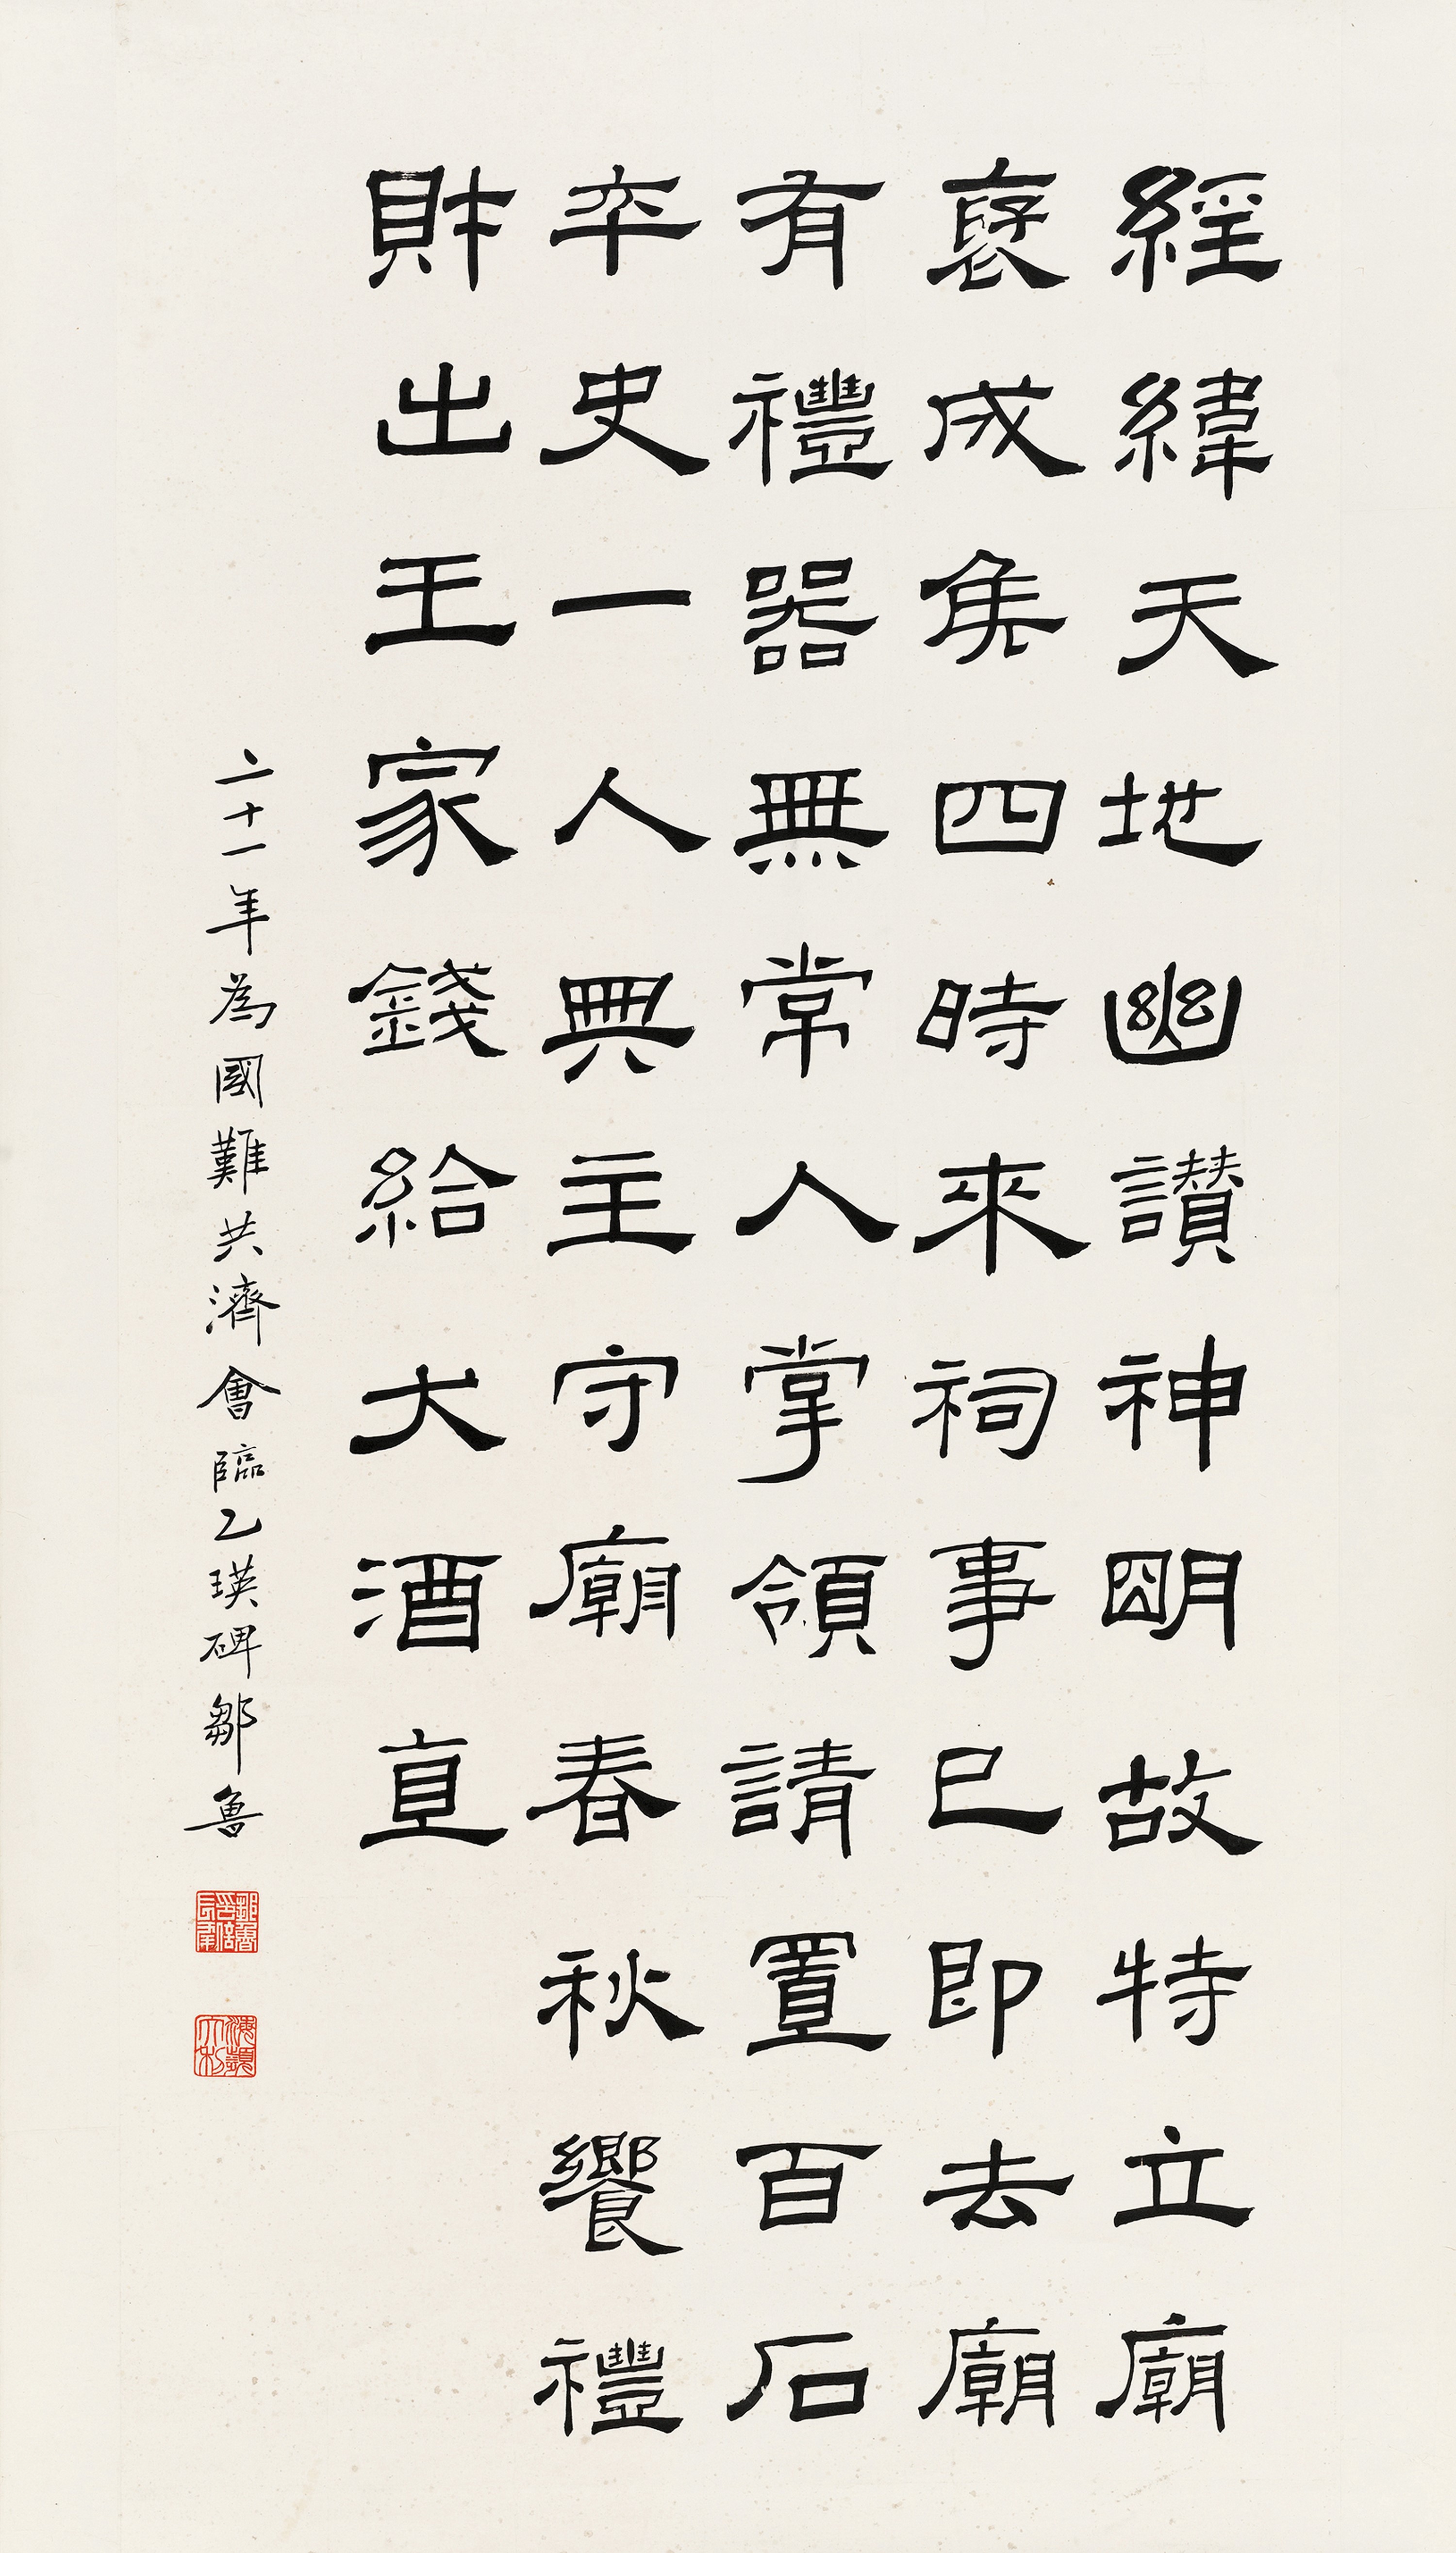 經緯天地幽讃神明故特立廟
襃成矦四時來祠事已即去廟
有禮器無常人掌領請置百石
卒史一人典主守廟春秋饗禮
財出王家錢給犬酒直
二十一年為國難共濟會臨乙瑛碑鄒魯